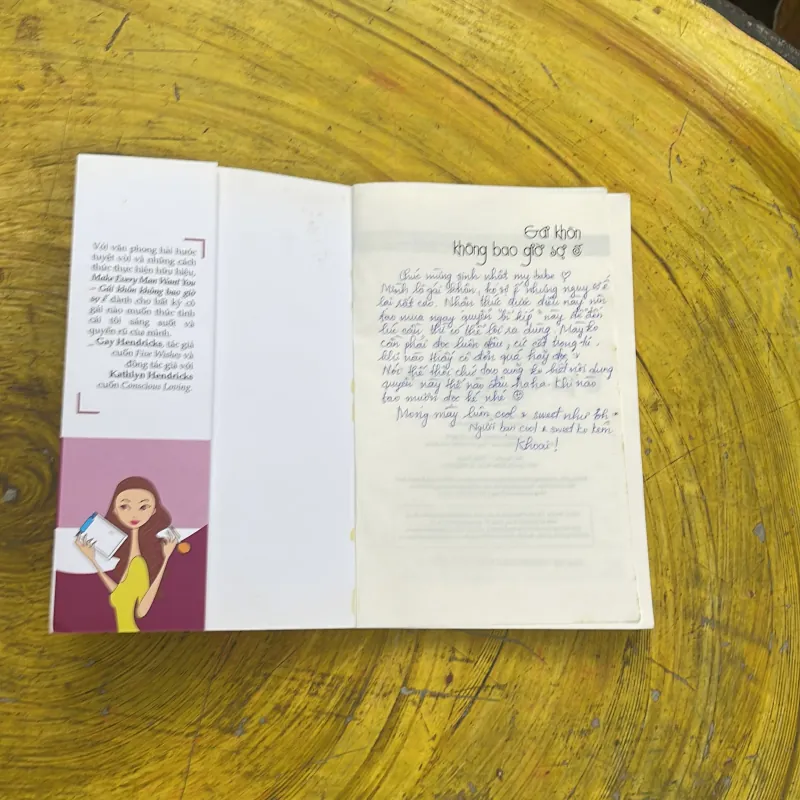 Với văn phong hài hước
tuyệt vời và những cách
thức thực hiện hữu hiệu,
Make Every Man Want You
– Gái khôn không bao giờ
sợ ế dành cho bất kỳ cô
gái nào muốn thức tỉnh
cái tôi sáng suốt và
quyến rũ của mình.
_ Gay Hendricks, tác giả
cuốn Five Wishes và
đồng tác giả với
Kathlyn Hendricks
cuốn Conscious Loving.
Gái khôn
không bao giờ sợ ế
Chúc mừng sinh nhật my babe ♡
Mình là gái khôn, ko sợ ế nhưng nguy cơ ế
lại rất cao. Nhận thức được điều này nên
tao mua ngay quyển "bí kíp" này để đến
lúc cần thì có thể lôi ra dùng. Mày ko
cần phải đọc luôn đâu, cứ cất trong tủ,
khi nào thấy cô đơn quá hãy đọc
Nói thế thôi chứ tao cũng ko biết nội dung
quyển này thế nào đâu haha. Khi nào
tao mượn đọc ké nhé ☺
Mong mày luôn cool & sweet như
Người bạn cool & sweet ko kém
Khoai!